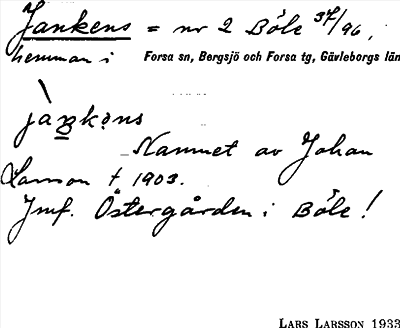 Jankens = nr 2 Böle 37/96,
hemman i Forsa sn, Bergsjö och Forsa tg, Gävleborgs län
Namnet av Johan
Larsson † 1903.
Jmf. Östergården i Böle!
LARS LARSSON 1933